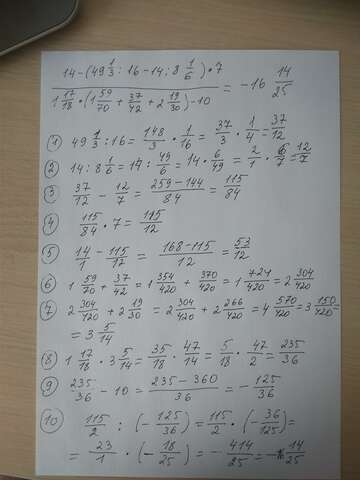 14-(49 1/3 : 16 - 14 : 8 1/6) • 7
1 17/18 • (1 59/70 + 37/42 + 2 19/30) - 10 = -16 14/25
① 49 1/3 : 16 = 148/3 • 1/16 = 37/3 • 1/4 = 37/12
② 14 : 8 1/6 = 14 : 49/6 = 14 • 6/49 = 2/1 • 6/7 = 12/7
③ 37/12 - 12/7 = 259-144/84 = 115/84
④ 115/84 • 7 = 115/12
⑤ 14/1 - 115/12 = 168-115/12 = 53/12
⑥ 1 59/70 + 37/42 = 1 354/420 + 370/420 = 1 724/420 = 2 304/420
⑦ 2 304/420 + 2 19/30 = 2 304/420 + 2 266/420 = 4 570/420 = 3 150/420
= 3 5/14
⑧ 1 17/18 • 3 5/14 = 35/18 • 47/14 = 5/18 • 47/2 = 235/36
⑨ 235/36 - 10 = 235-360/36 = - 125/36
⑩ 115/2 : (- 125/36) = 115/2 • (- 36/125) =
= 23/1 • (- 18/25) = - 414/25 = - 14/25